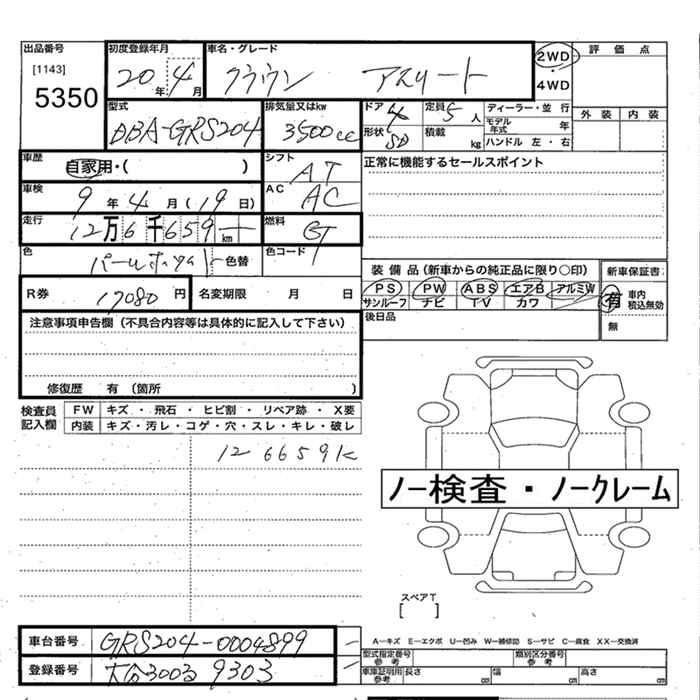 出品番号 初度登録年月 車名・グレード 2WD 評価点
[1143] 20年 4月 クラウン アスリート ・4WD
5350 型式 排気量又はkw ドア 4 定員 5人 ディーラー・並行 外装 内装
DBA-GRS204 3500cc 形状 SD 積載 kg モデル年式 年
ハンドル 左・右
車歴 自家用・( ) シフト AT 正常に機能するセールスポイント
車検 9年 4月(19日) AC AC
走行 12万6千659km 燃料 GT
色 パールホワイト 色替 色コード
装備品(新車からの純正品に限り○印) 新車保証書
R券 17080円 名変期限 月 日 PS PW ABS エアB アルミW 有 車内
サンルーフ ナビ TV カワ 税込無効
注意事項申告欄(不具合内容等は具体的に記入して下さい) 後日品 無
修復歴 有(箇所 )
検査員 FW キズ・飛石・ヒビ割・リペア跡・X要
記入欄 内装 キズ・汚レ・コゲ・穴・スレ・キレ・破レ
126659K
ノー検査・ノークレーム
スペアT
[ ]
車台番号 GRS204-0004899 A-キズ E-エクボ U-凹み W-補修跡 S-サビ C-腐食 XX-交換済
型式指定番号 参考 類別区分番号 参考
登録番号 300 9303 車庫証明用 参考 長さ cm 幅 cm 高さ cm